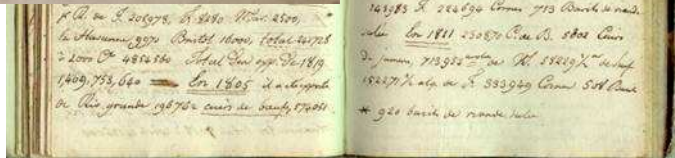 P. R. de F. 205978, L. 8280 Mar. 2500,
la Havanne 9970 Bristol 16000, total 242728
à 2000 4854560 Total des exp. de 1819
1,409,753,640 En 1805 il a exporté
de Rio grande 196762 cuirs de bœufs,
143985 F. 224694 Cornes 713 Barils de viande
salée En 1811 230870 C. de B. 5802 Cuirs
de jumens, 713952 de 58229 1/2 de Suif
152271 1/2 alq. de F. 333949 Cornes 508 Barils
* 920 barils de viande salée